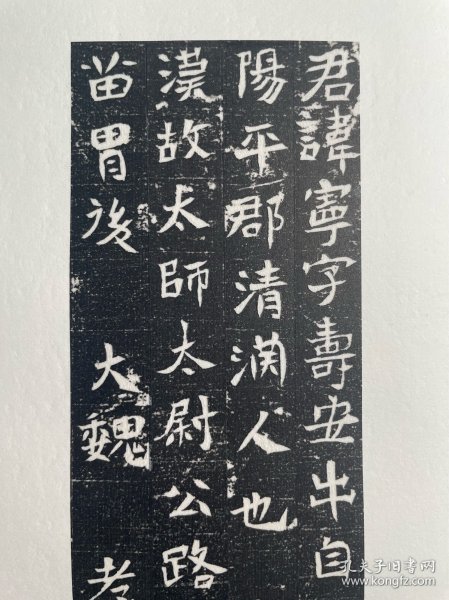 君諱寧字壽安出自
陽平郡清渊人也
漢故太師太尉公路
苗胄後 大魏 孝
孔夫子旧书网
www.kongfz.com